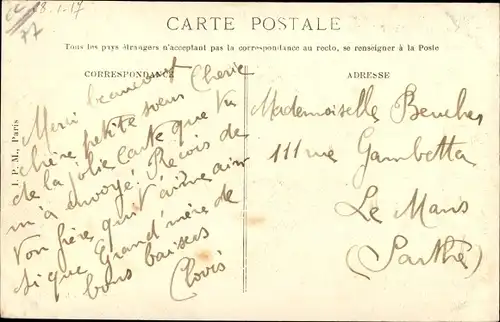 23.1.17
CARTE POSTALE
Tous les pays étrangers n'acceptant pas la correspondance au recto, se renseigner à la Poste
CORRESPONDANCE
Merci beaucoup Cherie
chère petite soeur
de la jolie carte que tu
m'a envoyé. Recois de
ton frère qui t'aime ain
si que Grand'mère de
bons baisers
Clovis
ADRESSE
Mademoiselle
111 rue Gambetta
Le Mans
(Sarthe)
I. P. M., Paris